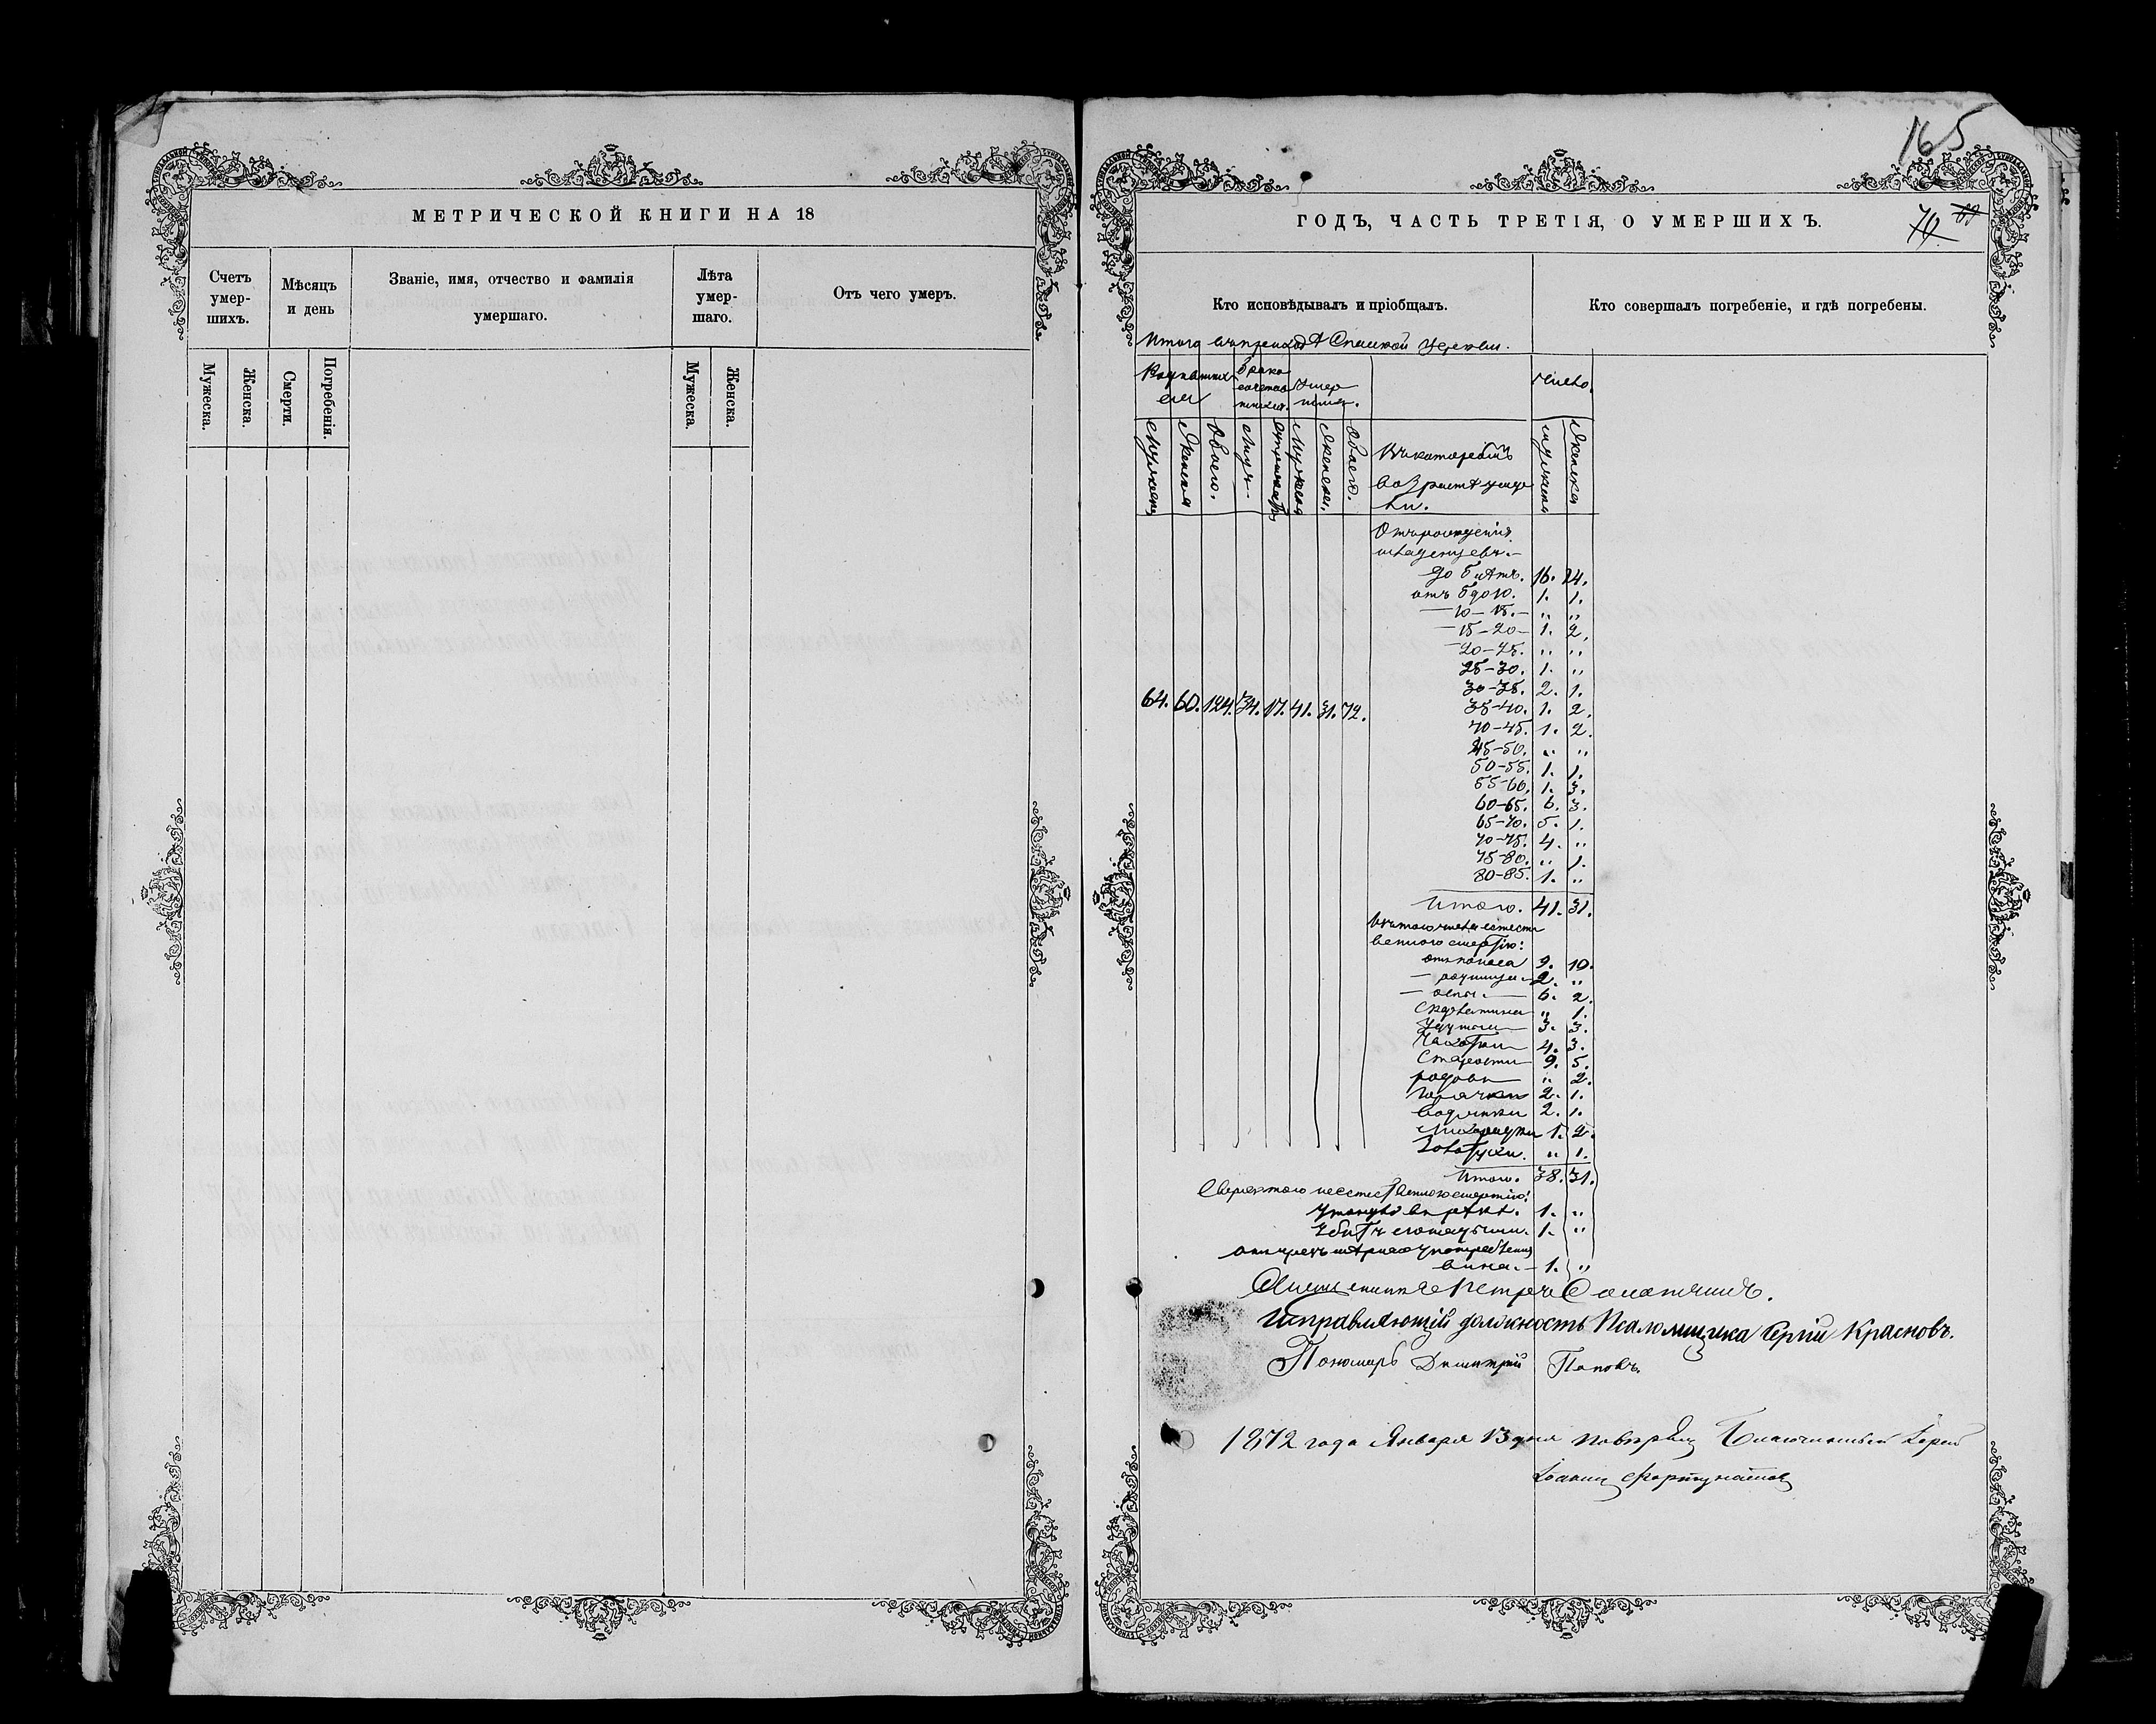 МЕТРИЧЕСКОЙ КНИГИ НА 18
Счетъ умер-шихъ.
Мѣсяцъ и день
Званіе, имя, отчество и фамилія умершаго.
Лѣта умер-шаго.
Отъ чего умеръ.
Мужеска.
Женска.
Смерти.
Погребенія.
Мужеска.
Женска.
165
ГОДЪ, ЧАСТЬ ТРЕТІЯ, О УМЕРШИХЪ.
70
Кто исповѣдывалъ и пріобщалъ.
Кто совершалъ погребеніе, и гдѣ погребены.
Итого въ приходѣ Спасской Церкви.
число.
Мужеска
Женска
Обоего.
Мужеска
Женска.
Обоего.
Въ которыхъ
возрастѣ
мужеска
Женска
Отъ рожденія
младенцевъ.
до 5 лѣтъ. 16. 14.
отъ 5 до 10. 1. 1.
— 10 — 15. — „ „
— 15 — 20 — 1. 2.
— 20 — 25. „ „
25 — 30. 1. „
30 — 35. 2. 1.
64. 60. 124. 34. 17. 41. 31. 72.
35 — 40. 1. 2.
40 — 45. 1. 2.
45 — 50. „ „
50 — 55. 1. 1.
55 — 60. 1. 3.
60 — 65. 6. 3.
65 — 70. 5. 1.
70 — 75. 4. „
75 — 80. „ 1.
80 — 85. 1. „
Итого. 41. 31.
Въ томъ числѣ естест
венною смертію:
отъ поноса 9. 10.
2. „
— оспы — 6. 2.
„ 1.
3. 3.
Чахотки 4. 3.
Старости 9. 5.
родовъ „ 2.
Горячки 2. 1.
Водянки 2. 1.
Лихорадки 1. 2.
Золотухи. „ 1.
Итого. 38. 31.
Сверхъ того неестественною смертію:
утонулъ въ рѣкѣ. 1. „
Убитъ лошадьми. 1. „
отъ чрезмѣрнаго употребленія
вина. — 1. „
Священникъ Петръ
Исправляющій должность Псаломщика Сергій Красновъ.
Пономарь Димитрій Поповъ.
1872 года Января 13 дня повѣрялъ Благочинный Іерей
Іоаннъ Фортунатовъ